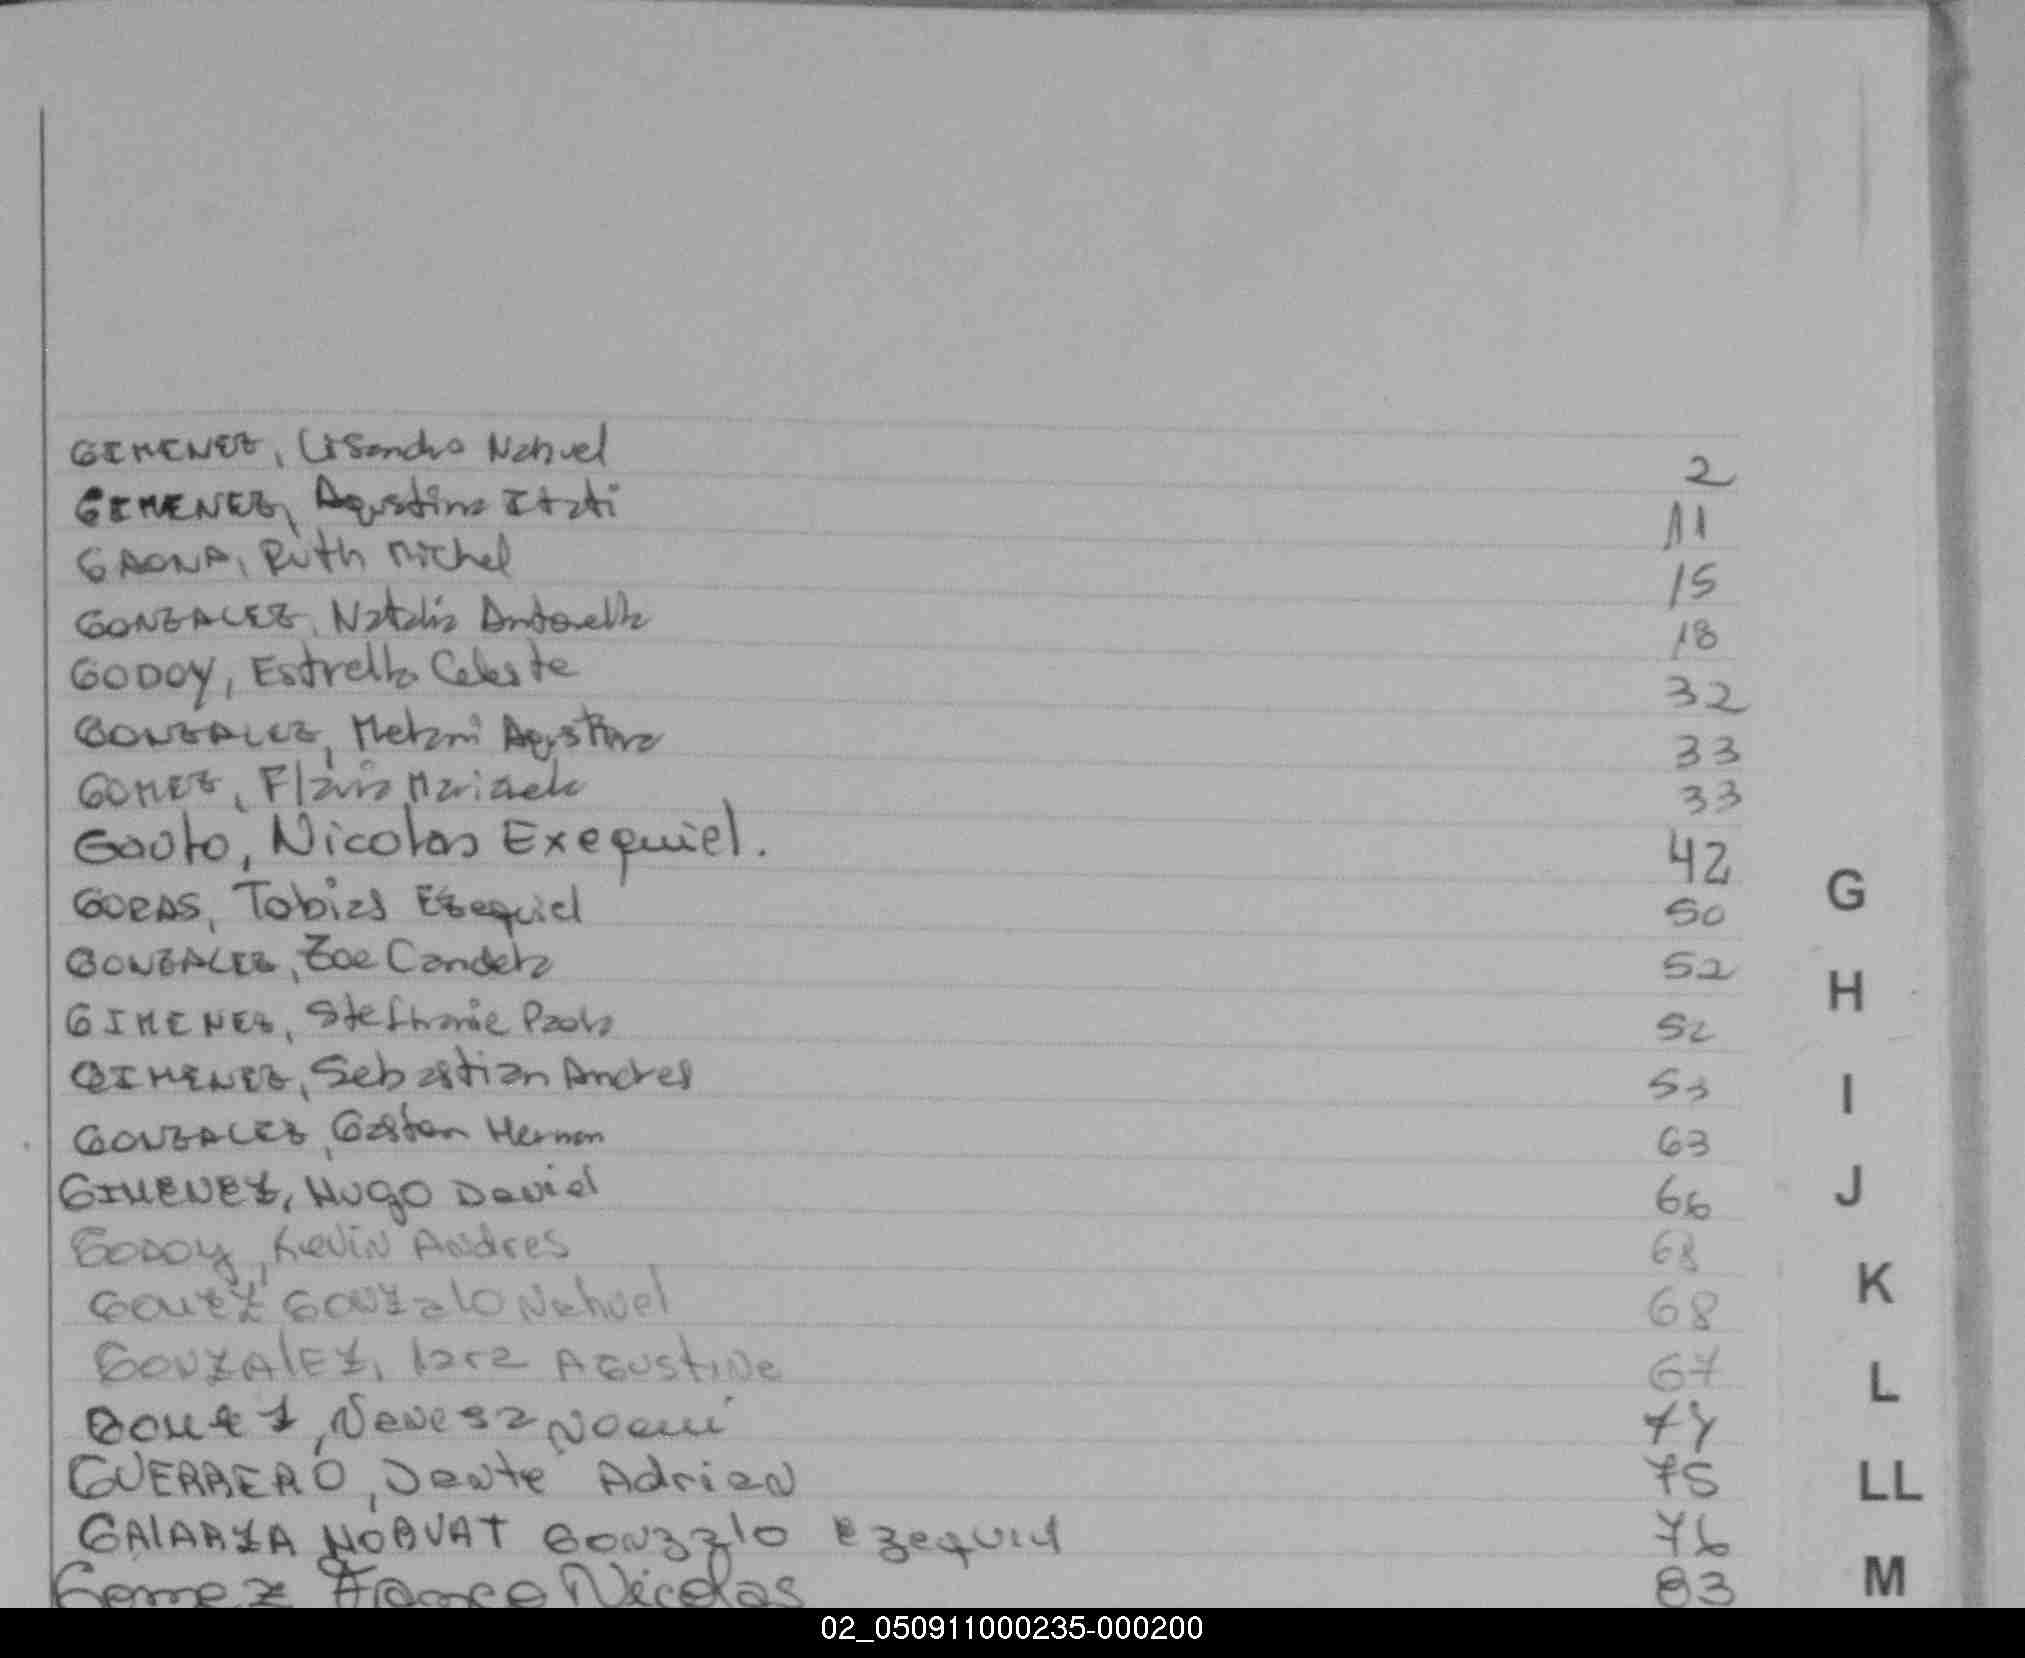 GIMENEZ, Lisandro Nahuel 2
GIMENEZ, Agustina Itati 11
GAONA, Ruth Michel 15
GONZALEZ, Natalia Antonella 18
GODOY, Estrella Celeste 32
GONZALEZ, Melani Agustina 33
GOMEZ, Flavia Mariaela 33
Gauto, Nicolas Exequiel. 42
G
Tobias Ezequiel 50
GONZALEZ, Zoe Candela 52
H
GIMENEZ, Stefhanie Paola 52
GIMENEZ, Sebastian Andres 53
I
GONZALEZ, Gaston Hernan 63
GIMENEZ, Hugo David 66
J
GODOY, Kevin Andres 68
K
GOMEZ GONzalo Nahuel 68
GONZALEZ, lara AGUStiNa 67
L
GOMEZ, Noemi
GUERRERO, Dante Adrian 75
LL
GAlARZA GONzalo Ezequiel 76
M
Gomez Franco Nicolas 83
02_050911000235-000200